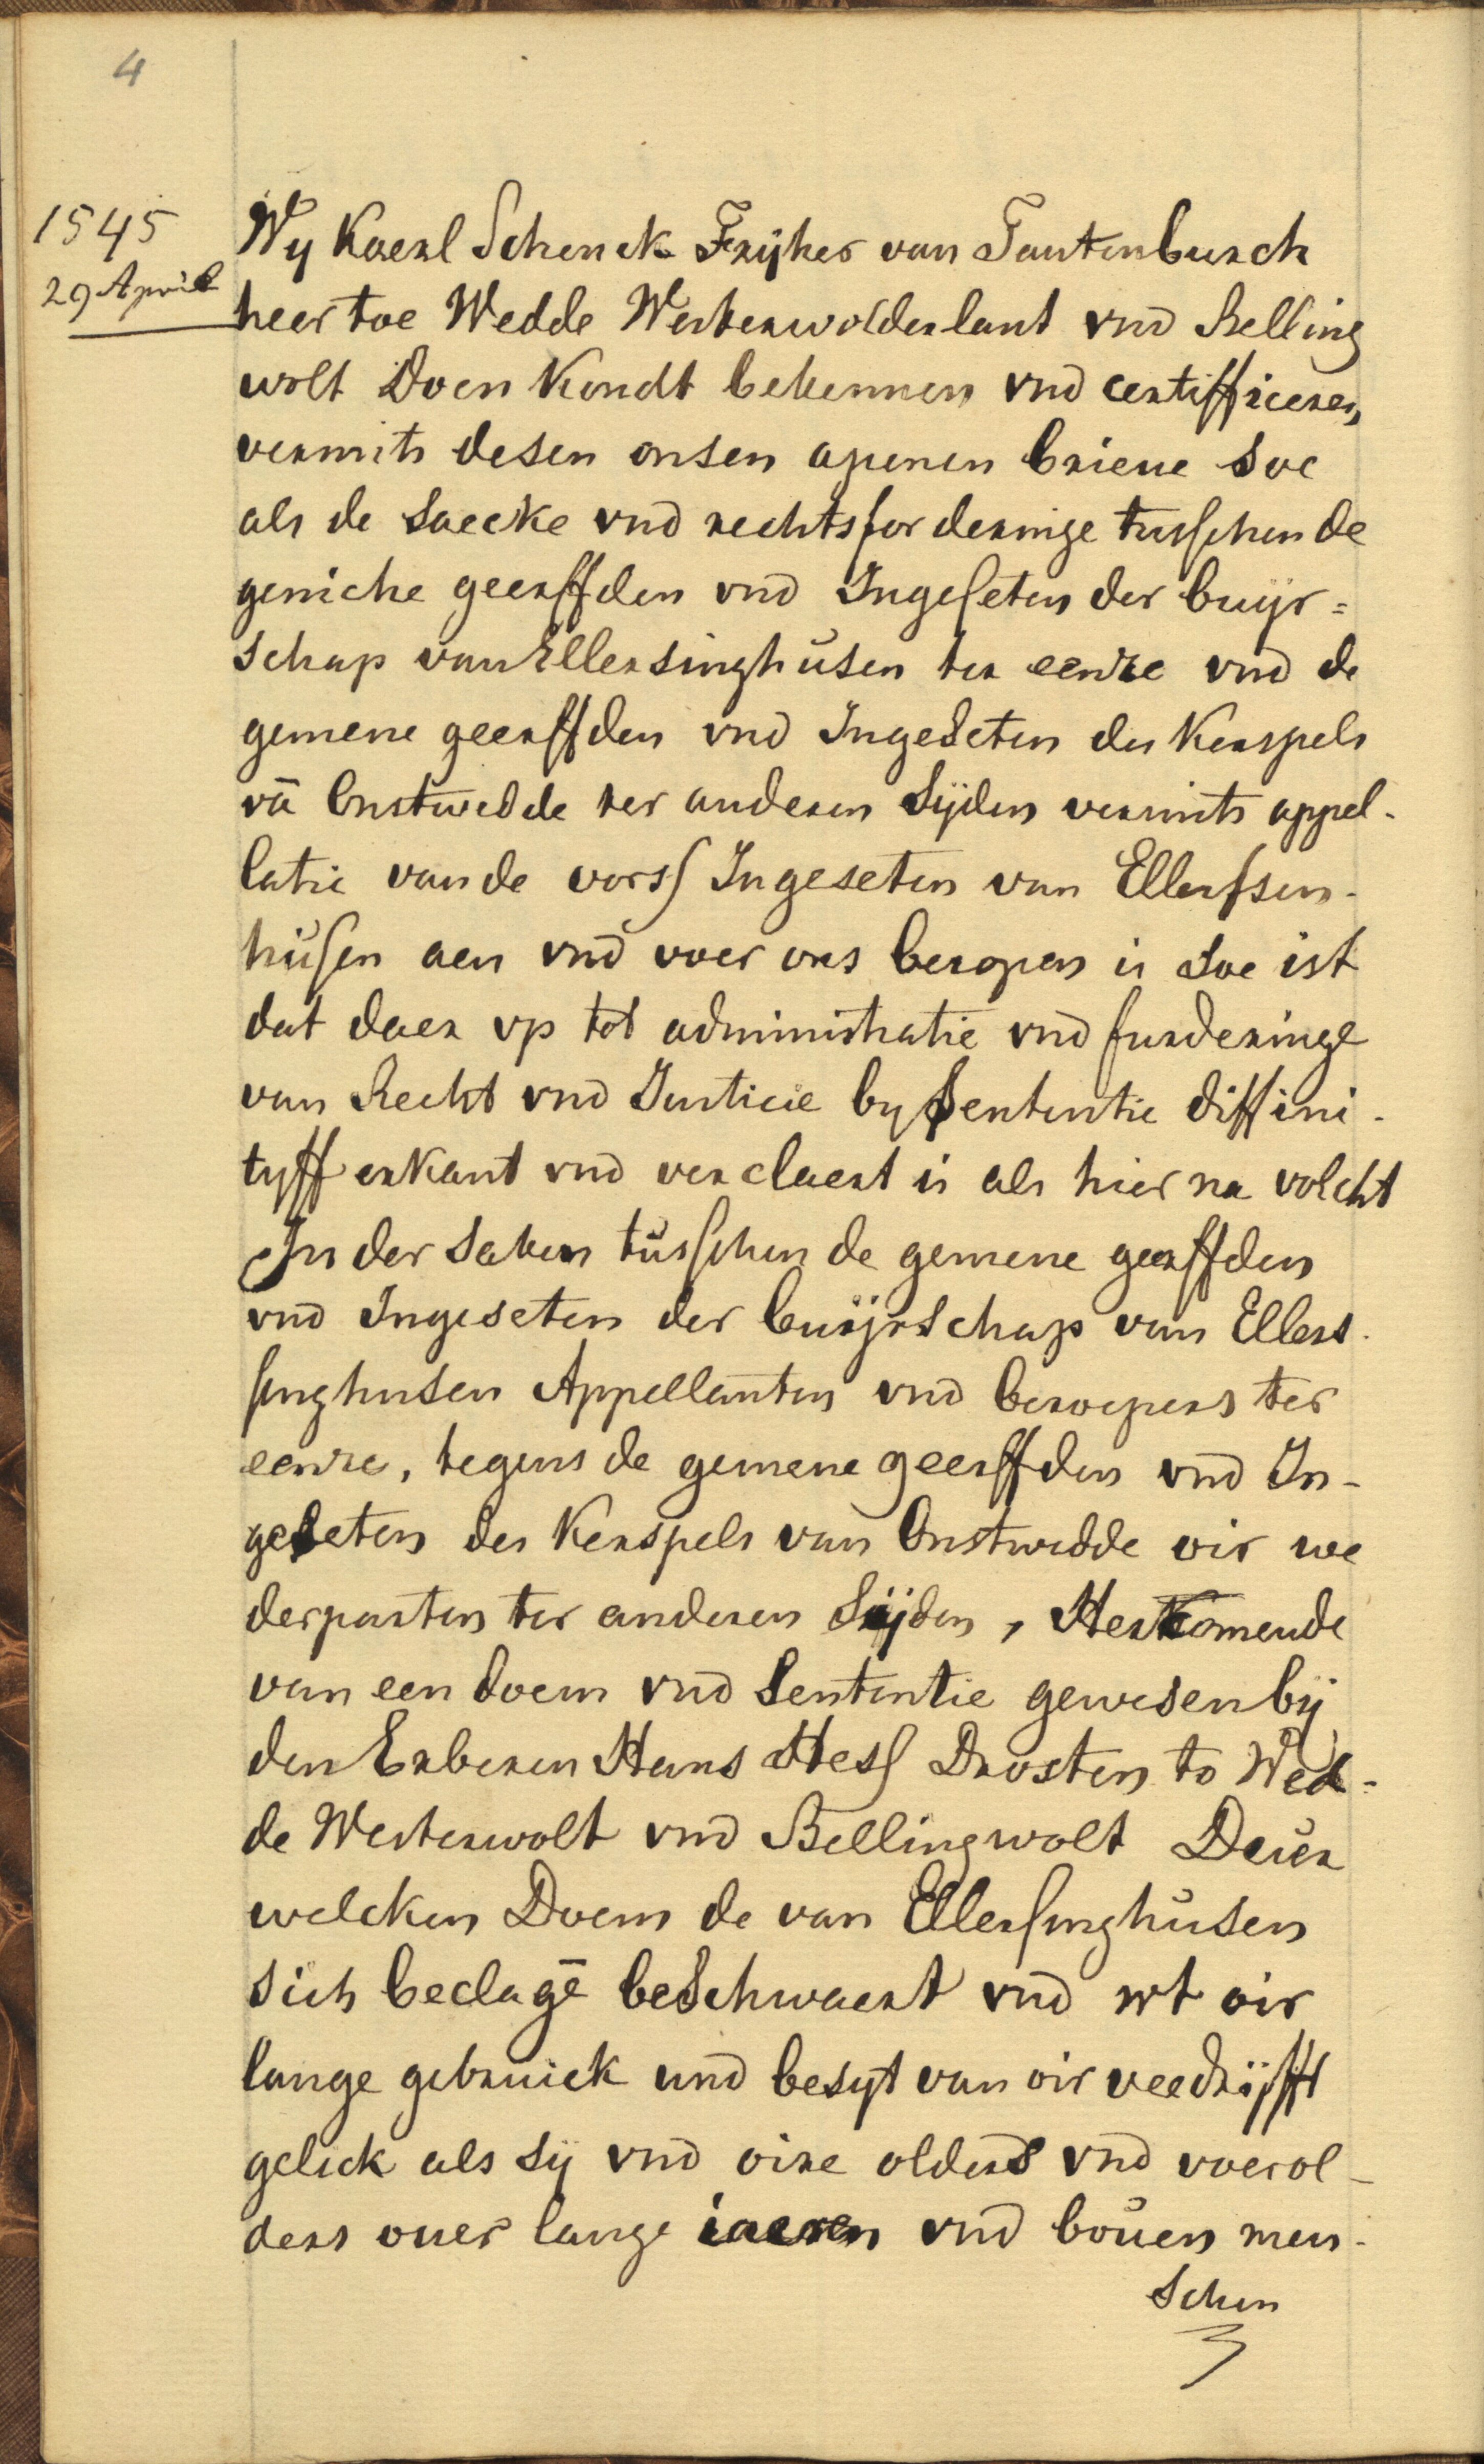 4
1545
29 April
Wy Kaerl Schenck Frijher van Tautenburch
heer toe Wedde Westerwolderlant vnd Belling
wolt Doen Kondt bekennen vnd certifficeren,
vermits desen onsen apenen brieue soe
als de saecke vnd rechtsforderinge tusschen de
gemene geerffden vnd Ingeseten der buijr=
schap van Ellersinghusen ter eenre vnd de
gemene geerffden vnd Ingeseten des Kerspels
vā Onstwedde ter anderen sijden vermits appel-
latie van de vorss Ingeseten van Ellerssin-
husen aen vnd voer ons beropen is soe ist
dat daer vp tot administratie vnd furderinge
van Recht vnd Iusticie by Sententie diffini-
tyff erkant vnd verclaert is als hier na volcht
In der saken tusschen de gemene geerffden
vnd Ingeseten der buijrschap van Ellers-
singhusen Appellanten vnd beroepers ter
eenre, tegens de gemene geerffden vnd In-
geseten des Kerspels van Onstwedde oir we
derparten ter anderen sijden, Herkomende
van een doem vnd Sententie gewesen bij
den Erberen Hans Hess Drosten to Wed=
de Westerwolt vnd Bellingwolt Dauer
welcken Doem de van Ellersinghusen
sich beclagē beschwaert vnd wt oir
lange gebruick und besyt van oir veedrijfft
gelick als sij vnd oire olders vnd voerol-
ders ouer lange iaeren vnd bouen men-
schen